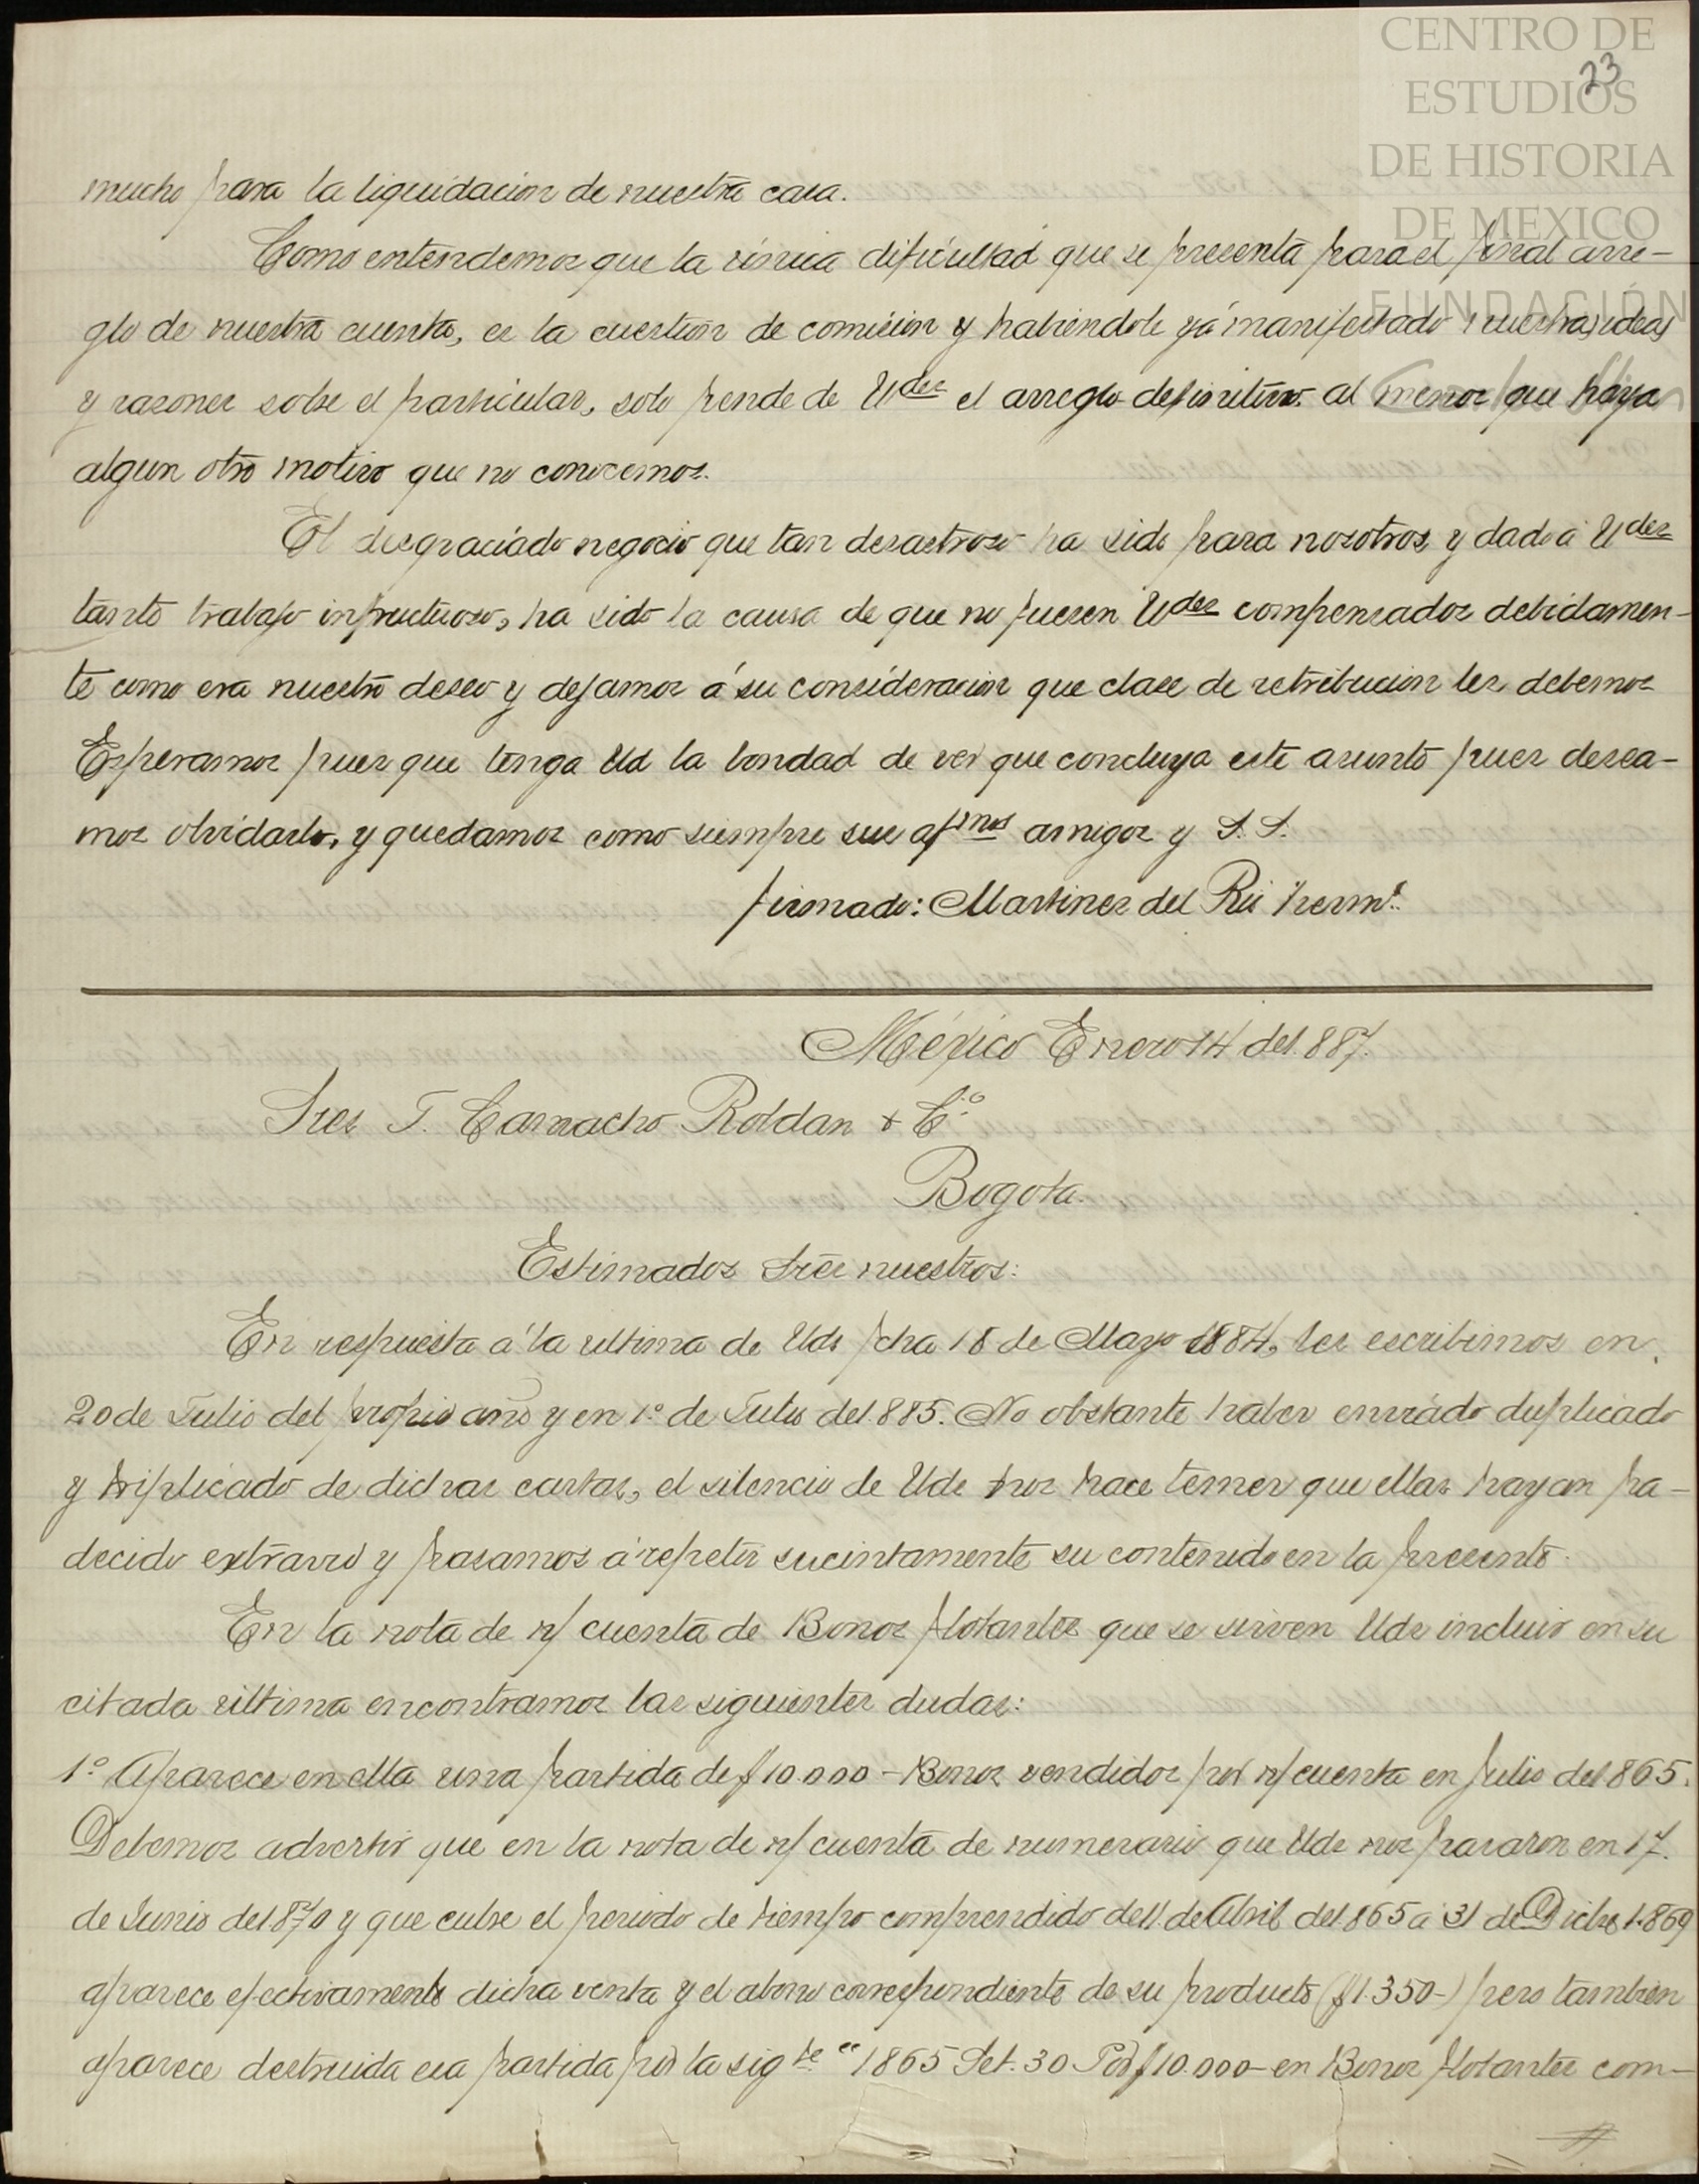 CENTRO DE
ESTUDIOS
DE HISTORIA
DE MEXICO
FUNDACIÓN
23
mucho para la liquidacion de nuestra casa.
Como entendemos que la única dificultad que se presenta para el final arre-
glo de nuestra cuenta, es la cuestion de comision y habiendole yá manifestado nuestras ideas
y razones sobre el particular, solo pende de Udes el arreglo definitivo al menos que haya
algun otro motivo que no conocemos.
El desgraciado negocio que tan desastroso ha sido para nosotros, y dado á Udes
tanto trabajo infructuoso, ha sido la causa de que no fuesen Udes compensados debidamen-
te como era nuestro deseo y dejamos á su consideracion que clase de retribucion les debemos
Esperamos pues que tenga Ud la bondad de ver que concluya este asunto pues desea-
mos olvidarlo, y quedamos como siempre sus afmos amigos y S. S.
firmado: Martinez del Rio herms.
México Enero 14 de 1.887.
Sres S. Camacho Roldan & Cº
Bogota.
Estimados Sres nuestros:
En respuesta á la ultima de Uds fcha 18 de Mayo 1884, les escribimos en
20 de Julio del propio año y en 1º de Julio de 1.885. No obstante haber enviado duplicado
y triplicado de dichas cartas, el silencio de Uds nos hace temer que ellas hayan pa-
decido extravio y pasamos á repetir sucintamente su contenido en la presente.
En la nota de n/ cuenta de Bonos flotantes que se sirven Uds incluir en su
citada última encontramos las siguientes dudas:
1º Aparece en ella una partida de $10.000 - Bonos vendidos por n/ cuenta en Julio de 1.865.
Debemos advertir que en la nota de n/ cuenta de numerario que Uds nos pasaron en 17.
de Junio de 1.870 y que cubre el periodo de tiempo comprendido del 1. de Abril de 1.865 á 31 de Dicbe 1.869
aparece efectivamente dicha venta y el abono correspondiente de su producto ($1.350-) pero tambien
aparece destruida esa partida por la sigte "1865 Set. 30 Por $10.000- en Bonos flotantes com-